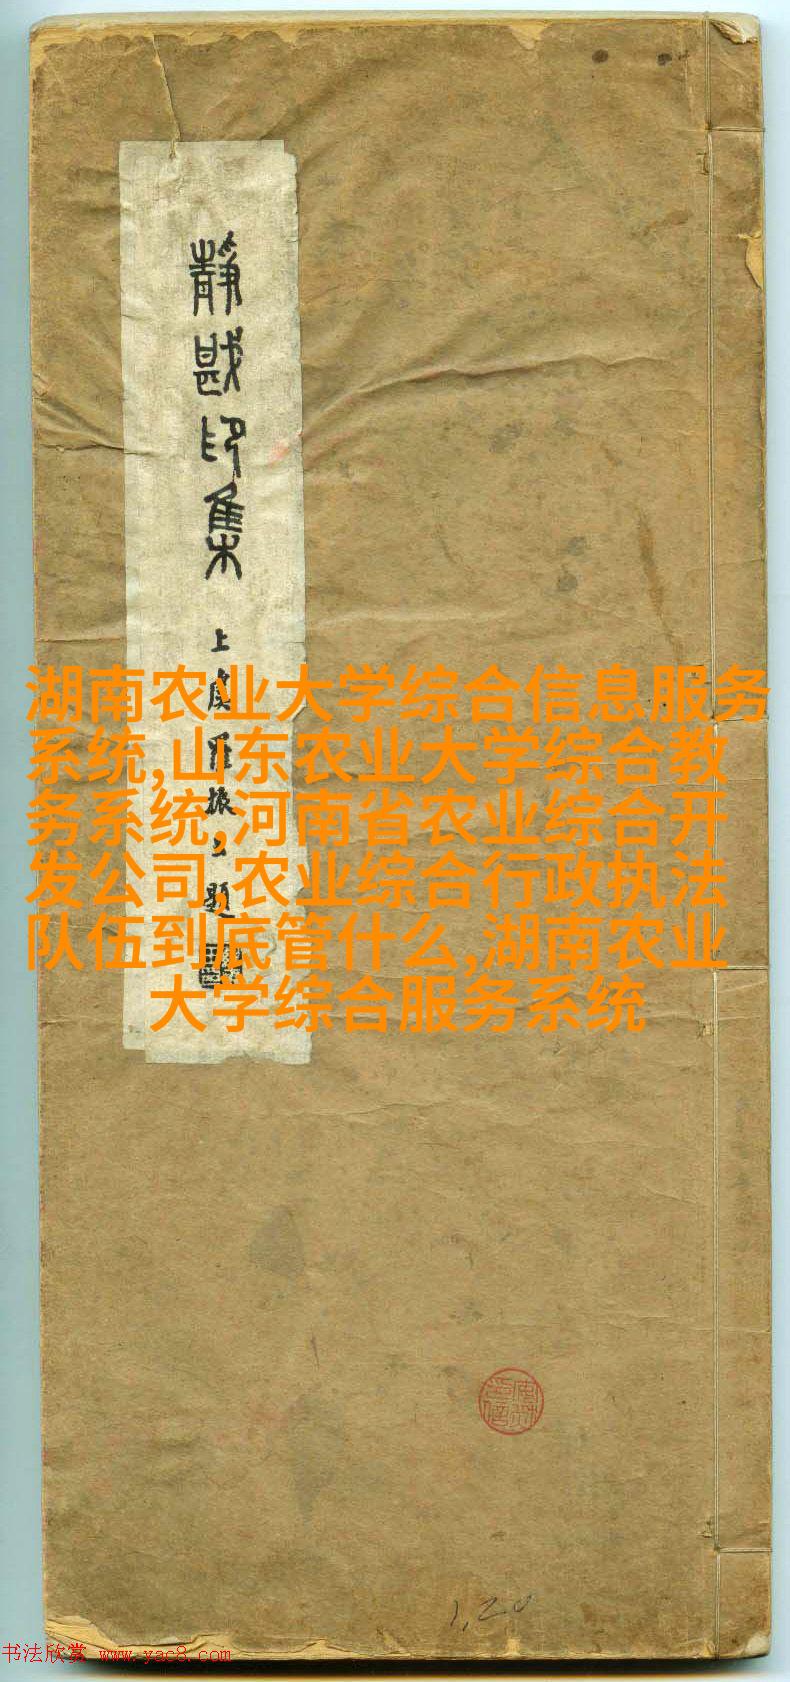 静戡印集
上虞羅振玉題
湖南农业大学综合信息服务
系统,山东农业大学综合教
务系统,河南省农业综合开
发公司,农业综合行政执法
队伍到底管什么,湖南农业
大学综合服务系统
1,20
书法欣赏 www.yac8.com